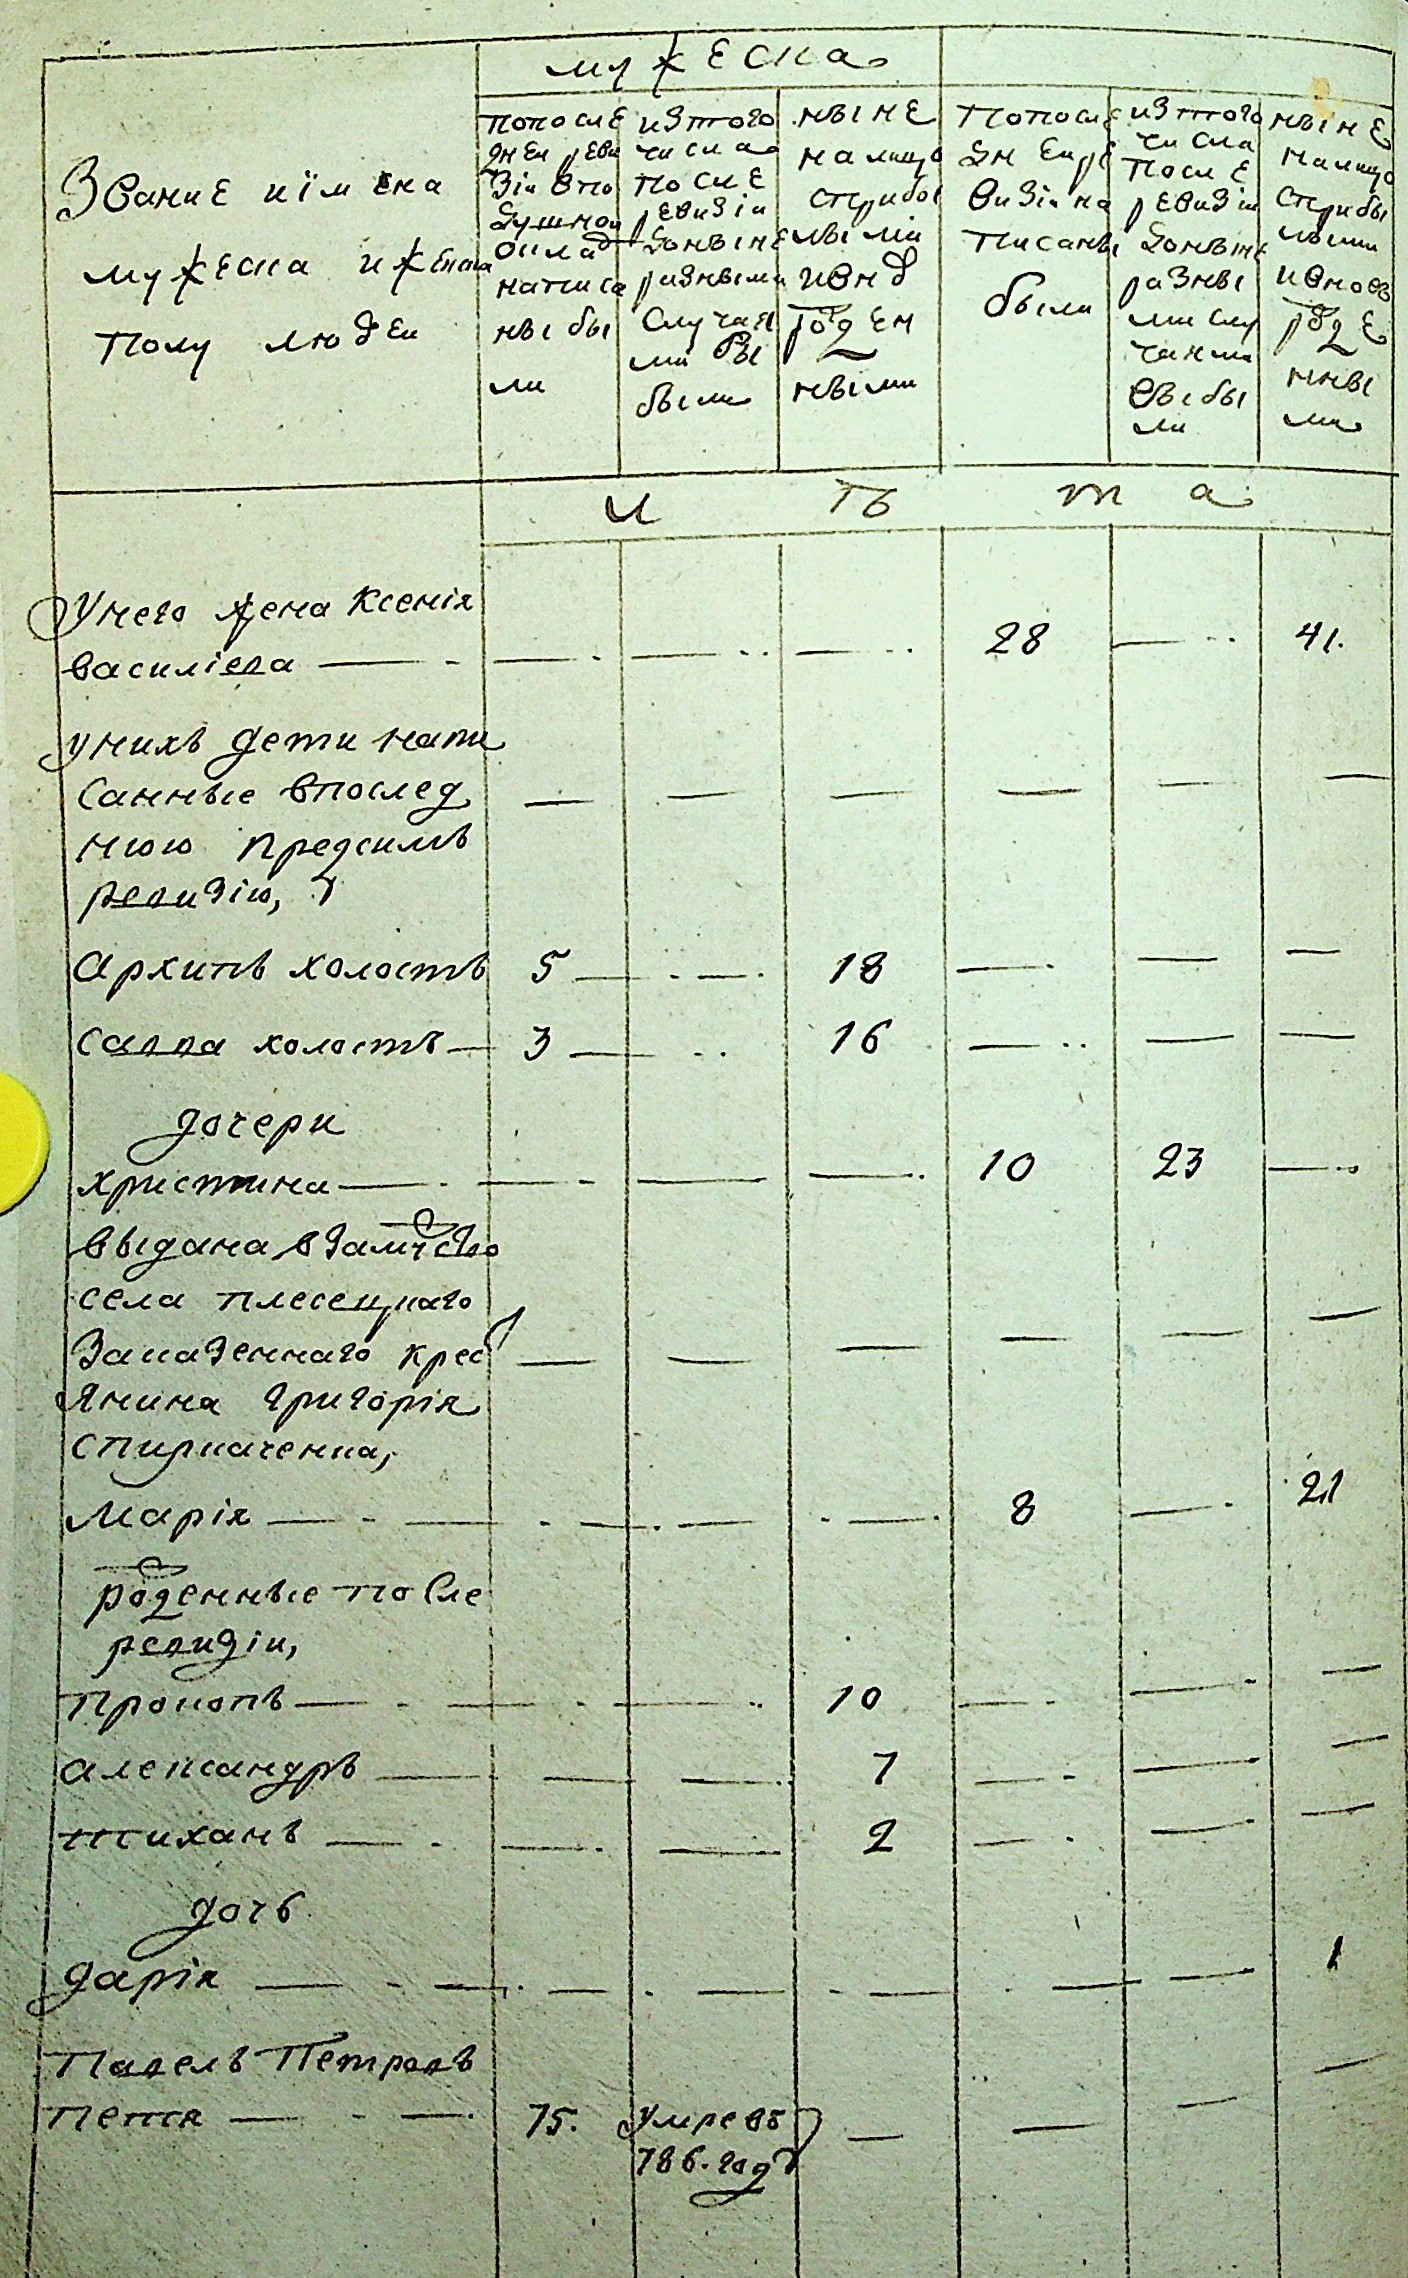 мужеска
Звание иїмена
мужеска иженска
полу людеи
попосле
днеи реви
зіи впо
душнои
оклад
написа
ны бы
ли
изтого
числа
после
ревизіи
доныне
разными
случая
ми вы
были
ныне
налицо
сприбы
лыми
ивнов
роден
ными
попосле
днеире
визіи на
писаны
были
изтого
числа
после
ревизіи
доныне
разны
ми слу
чаями
выбы
ли
ныне
налицо
сприбы
лыми
ивновь
роде
нны
ми
л ѣ т а
Унего жена Ксенія
василіева 28 41.
унихъ дети напи
санные впослед
нюю предсимъ
ревизію,
Архипъ холостъ 5 18
савва холостъ 3 16
дочери
христина 10 23
выдана взамуство
села плесецкаго
заказеннаго крес
янина григорія
спиркаченка,
Марія 8 21
роденные после
ревизіи,
Прокопъ 10
александръ 7
тиханъ 2
дочь
дарія 1
Павелъ Петровъ
пепия 75. умревъ
786. году